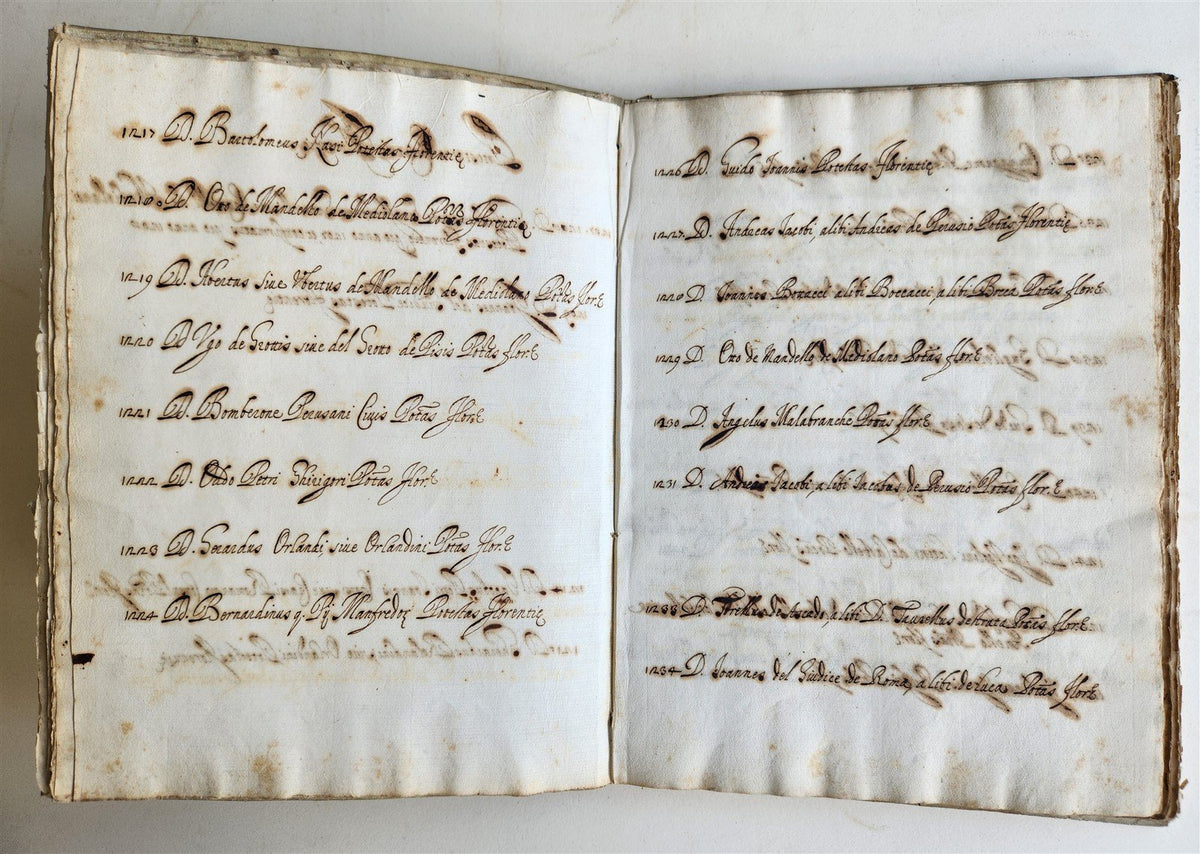 1217 D. Bartolomeus Nasi Potestas Florentiȩ
1218. D. Oxo de Mandello de Mediolano Potas Florentiȩ
1219 D. Ubertus siue Vbertus de Mandello de Mediolano Potas flor.E
1220 D Vgo de Grottis siue del Grotto de Pisis Potas flor.E
1221 D. Bomberone Perusani Ciuis Potas flor.E
1222 D. Oddo Petri Ghirigori Potas flor.E
1223 D. Gerardus Orlandi siue Orlandini Potas flor.E
1224 D. Bernardinus q. Pij Manfredoꝝ Potestas Florentiȩ
1226 D. Guido Ioannis Potestas Florentiȩ
1227 D. Andreas Iacobi, alibi Andreas de Perusio Potas florentiȩ
1228 D. Ioannes Boxacci alibi Boccacci alibi Boxca Potas flor.E
1229 D. Oxo de Mandello de Mediolano Potas flor.E
1230 D. Angelus Malabranche Potas flor.E
1231 D. Andreas Iacobi, alibi Iacobus de Perusio Potas flor.E
1233 D. Torellus de Ascado, alibi D. Taurellus de Strata Potas flor.E
1234 D. Ioannes del Giudice de Roma, alibi de Luca Potas flor.E